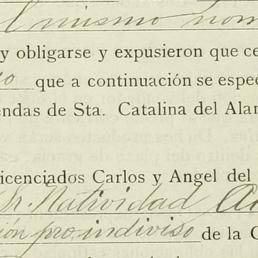 l mismo nom
y obligarse y expusieron que ce
o que a continuación se espec
endas de Sta. Catalina del Alar
icenciados Carlos y Angel del
Sr. Natividad
ión pro indiviso de la C